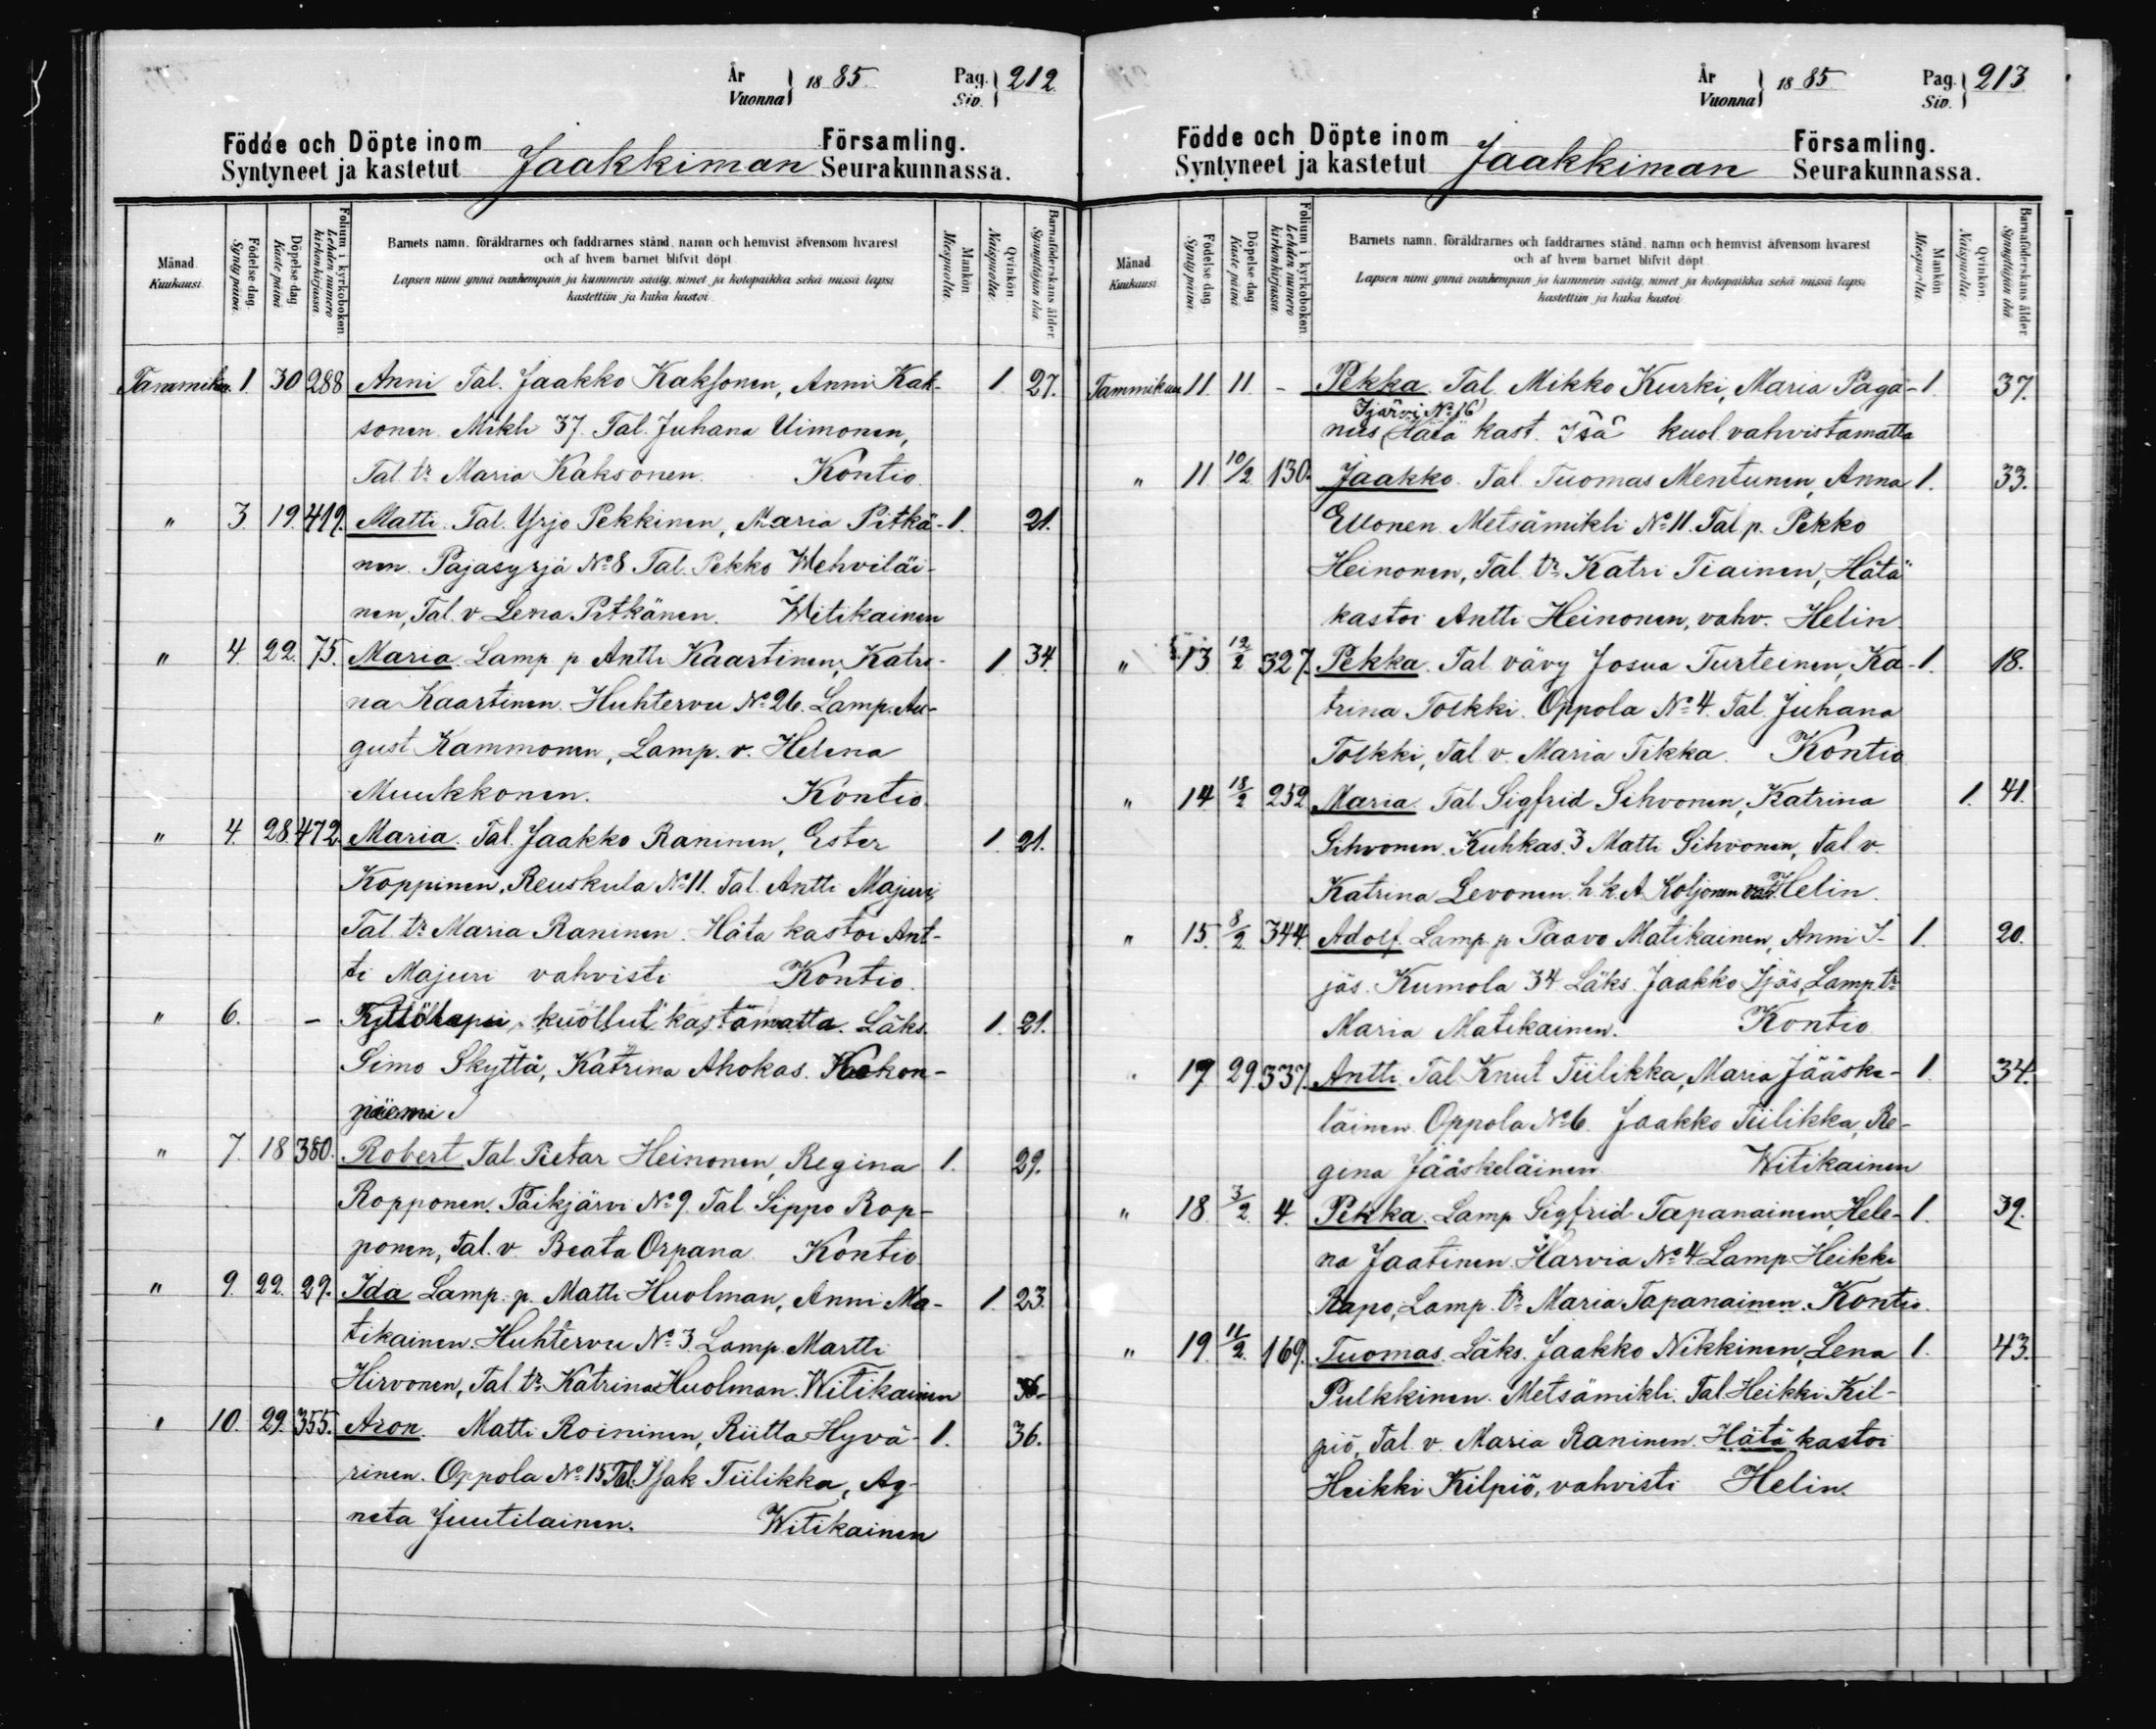 År Vuonna 1885. Pag. Siv. 212.
Födde och Döpte inom Jaakkiman Församling.
Syntyneet ja kastetut Seurakunnassa.
Månad. Kuukausi.
Födelse-dag. Synty päivä.
Döpelse-dag Kaste päivä
Folium i kyrkoboken. Lehden numero kirkonkirjassa.
Barnets namn, föräldrarnes och faddrarnes stånd, namn och hemvist äfvensom hvarest
och af hvem barnet blifvit döpt.
Lapsen nimi ynnä vanhempain ja kummein sääty, nimet ja kotopaikka sekä missä lapsi
kastettiin ja kuka kastoi.
Mankön. Miespuolta.
Qvinkön. Naispuolta.
Barnaföderskans ålder. Synnyttäjän ikä.
Tammiku. 1. 30 288 Anni Tal. Jaakko Kaksonen, Anni Kak- 1 27.
sonen. Mikli 37. Tal. Juhana Uimonen,
Tal. tr Maria Kaksonen. Kontio.
" 3. 19. 419. Matti. Tal. Yrjo Pekkinen, Maria Pitkä- 1. 21.
nen. Pajasyrjä No 8 Tal. Pekko Wehviläi-
nen, Tal. v Lena Pitkänen. Witikainen
" 4. 22. 75. Maria. Lamp p Antti Kaartinen, Katri- 1 34.
na Kaartinen. Huhtervu No 26. Lamp. Au-
gust Kammonen, Lamp. v. Helena
Muukkonen. Kontio.
" 4. 28. 472. Maria. Tal. Jaakko Raninen, Ester 1. 21.
Koppinen, Reuskula No 11. Tal. Antti Majuri,
Tal. tr Maria Raninen. Hätä kastoi Ant-
ti Majuri vahvisti Kontio.
" 6. - kuollut kastamatta. Läks. 1. 21.
Simo Skyttä, Katrina Ahokas.
" 7. 18 380. Robert Tal. Pietar Heinonen, Regina 1. 29.
Ropponen. Paikjärvi No 9. Tal. Sippo Rop-
ponen, Tal. v. Beata Orpana. Kontio
" 9. 22. 29. Ida Lamp. p. Matti Huolman, Anni Ma- 1. 23.
tikainen. Huhtervu No 3. Lamp. Martti
Hirvonen, Tal. tr Katrina Huolman. Witikainen
" 10. 29. 355. Aron. Matti Roininen, Riitta Hyvä- 1. 36.
rinen. Oppola No 15 Tal. Isak Tiilikka, Ag-
neta Juutilainen. Witikainen
År Vuonna 1885. Pag. Siv. 213
Födde och Döpte inom Jaakkiman Församling.
Syntyneet ja kastetut Seurakunnassa.
Månad Kuukausi.
Födelse dag. Synty päivä.
Döpelse dag Kaste päivä
Folium i kyrkoboken. Lehden numero kirkonkirjassa.
Barnets namn, föräldrarnes och faddrarnes stånd, namn och hemvist äfvensom hvarest
och af hvem barnet blifvit döpt.
Lapsen nimi ynnä vanhempain ja kummein sääty, nimet ja kotopaikka sekä missä lapsi
kastettiin ja kuka kastoi.
Mankön Miespuolta.
Qvinkön. Naispuolta.
Barnaföderskans ålder Synnyttäjän ikä.
Tammikuu 11. 11. - Pekka. Tal. Mikko Kurki, Maria Paga- 1. 37.
Ijärvi No 16
nus, Hätä kast. Isä kuol. vahvistamatta
" 11. 10/2 130. Jaakko. Tal. Tuomas Mentunen, Anna 1. 33.
Ellonen. Metsämikli No 11. Tal. p. Pekko
Heinonen, Tal. tr Katri Tiainen, Hätä
kastoi Antti Heinonen, vahv. Helin
" 13. 12/2 327. Pekka. Tal. vävy Josua Turteinen, Ka- 1. 18.
trina Tolkki. Oppola No 4. Tal. Juhana
Tolkki, Tal. v. Maria Tikka. Kontio
" 14. 18/2 252. Maria. Tal. Sigfrid Sihvonen, Katrina 1. 41.
Sihvonen. Kuhkas. 3 Matti Sihvonen, Tal. v.
Katrina Levonen. h. k. A. Koljonen Helin.
" 15. 8/2 344. Adolf. Lamp. p. Paavo Matikainen, Anni I- 1. 20.
jäs. Kumola 34. Läks. Jaakko Ijäs, Lamp. tr
Maria Matikainen. Kontio
17. 29. 337. Antti. Tal. Knut Tiilikka, Maria Jääske- 1. 34.
läinen. Oppola No 6. Jaakko Tiilikka, Re-
gina Jääskeläinen. Witikainen
" 18. 3/2. 4. Pekka. Lamp Sigfrid Tapanainen, Hele- 1. 39.
na Jaatinen. Harvia No 4 Lamp. Heikki
Rapo, Lamp. tr Maria Tapanainen. Kontio.
" 19. 11/2. 169. Tuomas. Läks. Jaakko Nikkinen, Lena 1. 43.
Pulkkinen. Metsämikli. Tal. Heikki Kil-
piö, Tal. v. Maria Raninen. Hätä kastoi
Heikki Kilpiö, vahvisti Helin.